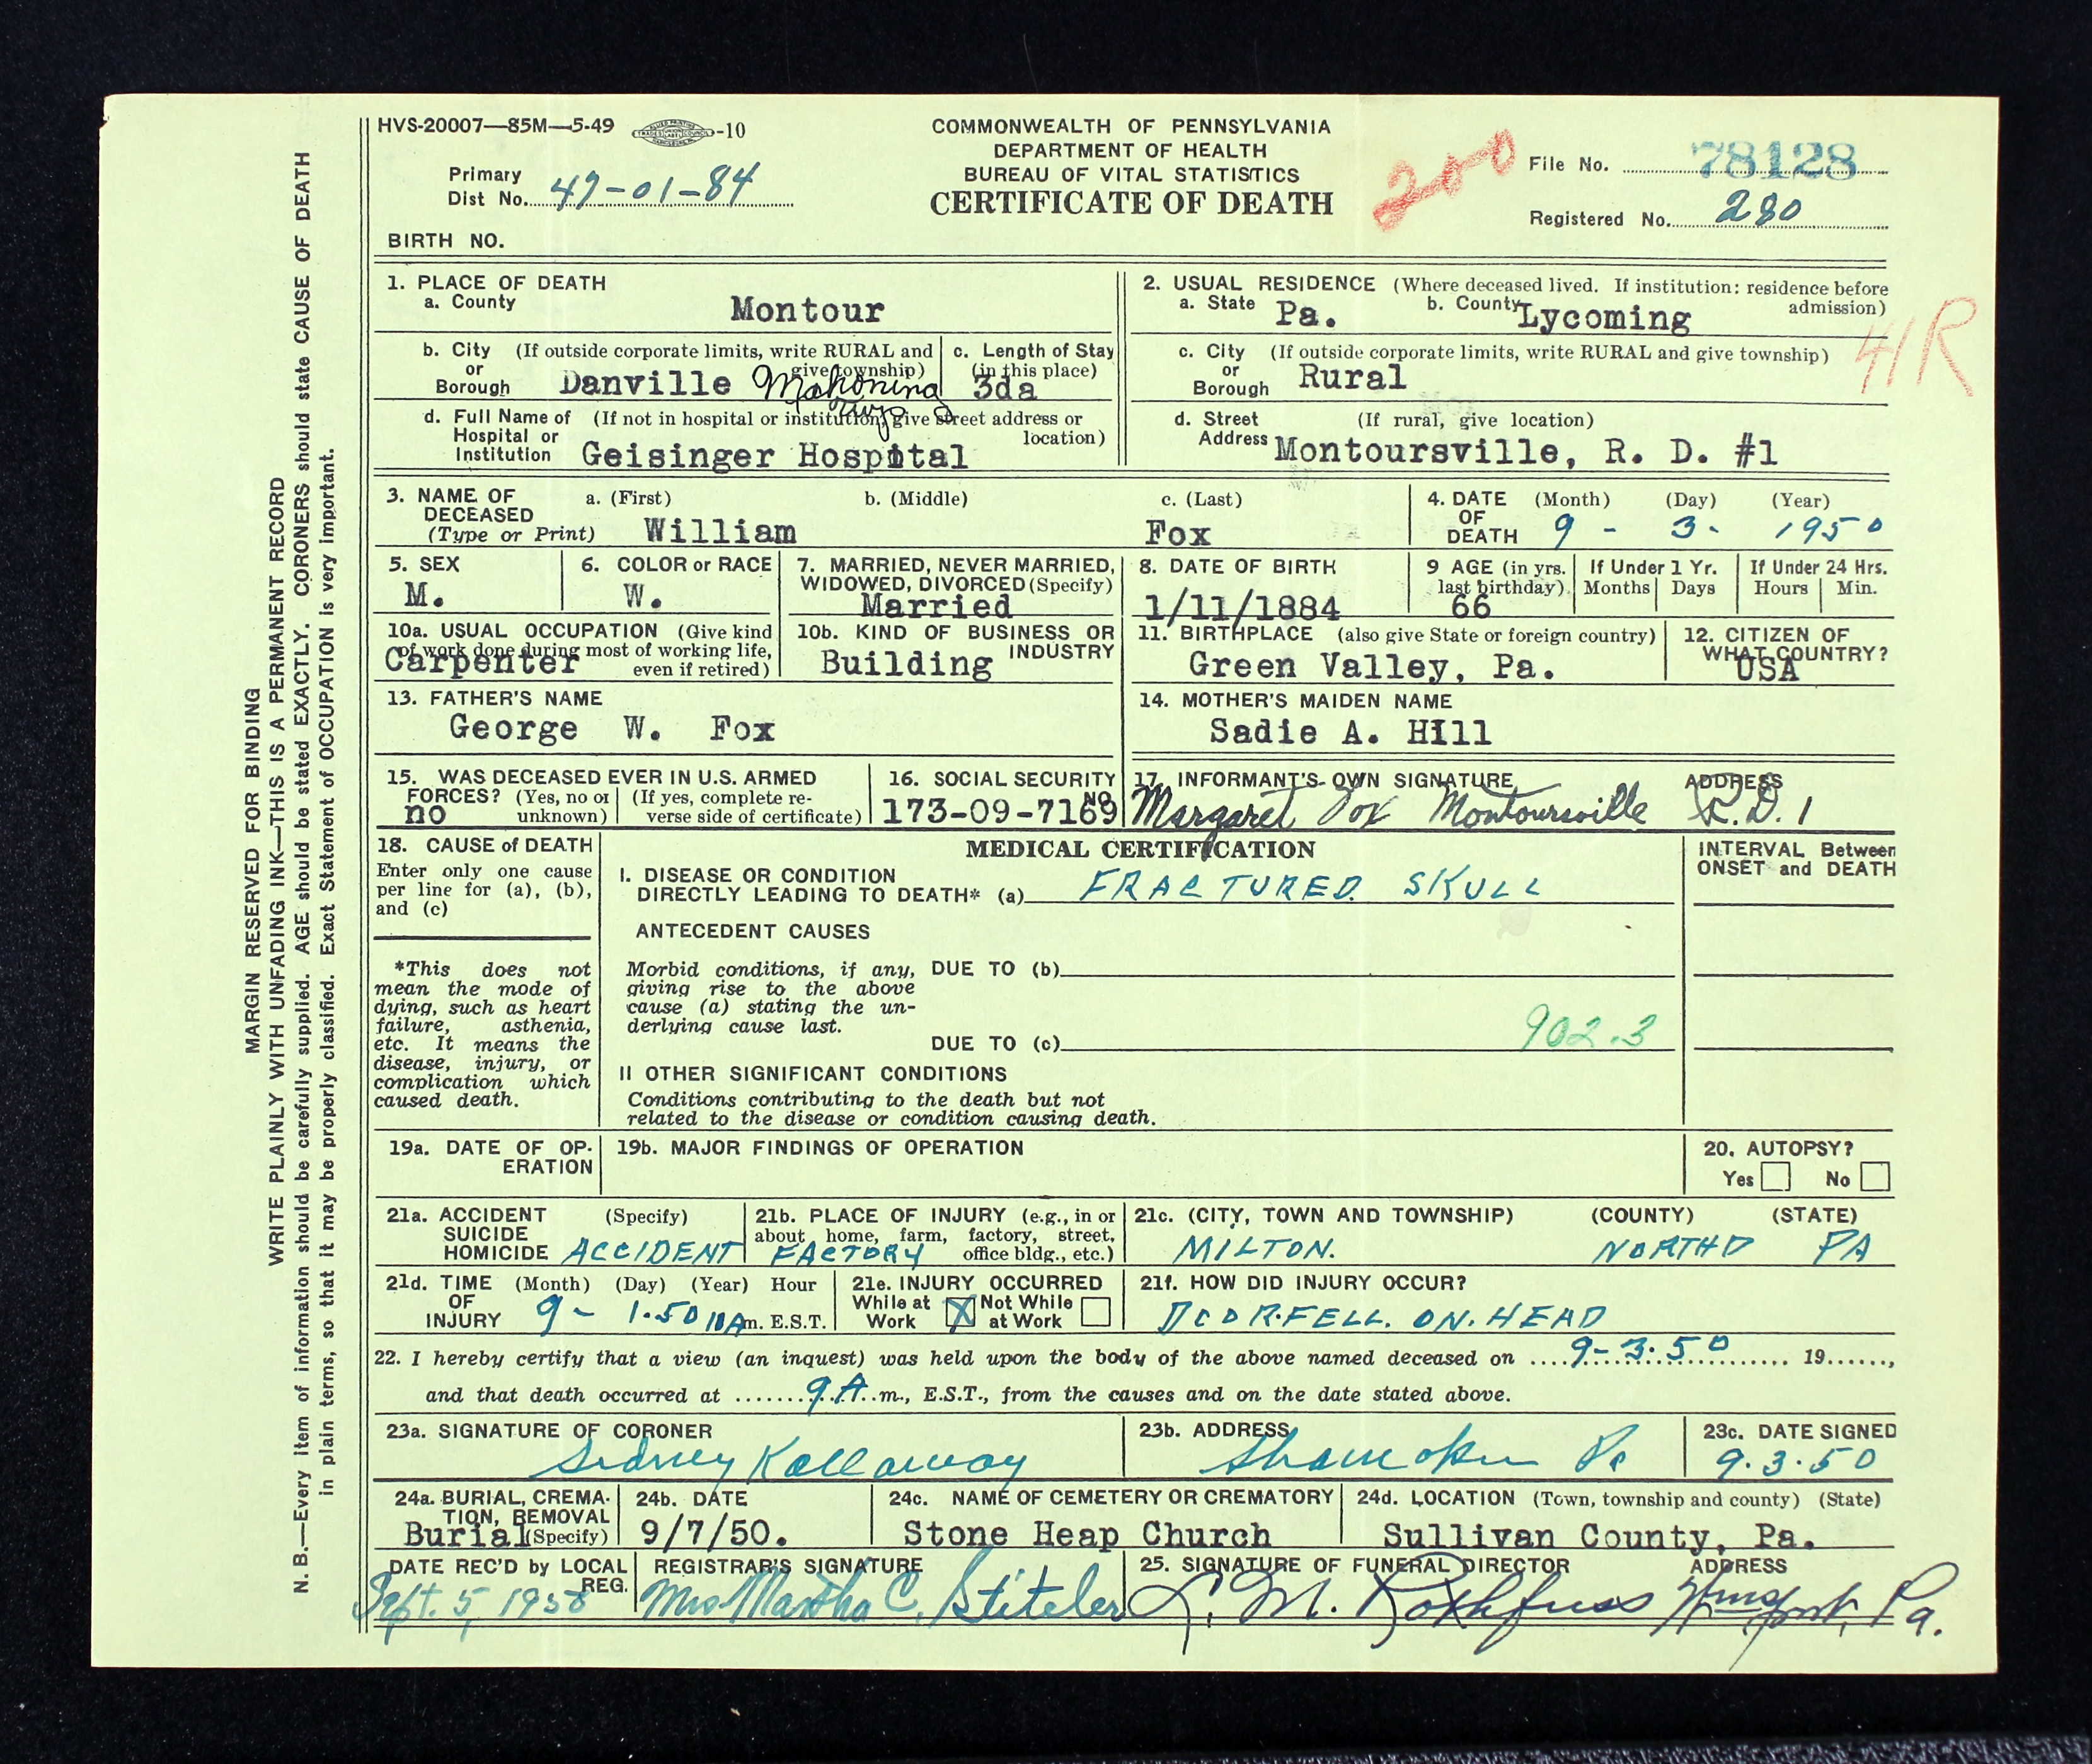 HVS-20007—85M—5-49 -10
COMMONWEALTH OF PENNSYLVANIA
DEPARTMENT OF HEALTH
BUREAU OF VITAL STATISTICS
CERTIFICATE OF DEATH
200
Primary
Dist No. 47-01-84
File No. 78128
Registered No. 280
BIRTH NO.
1. PLACE OF DEATH
a. County Montour
2. USUAL RESIDENCE (Where deceased lived. If institution: residence before admission)
a. State Pa. b. County Lycoming
41R
b. City or Borough (If outside corporate limits, write RURAL and give township) Danville Mahoning Twp
c. Length of Stay (in this place) 3da
c. City or Borough (If outside corporate limits, write RURAL and give township) Rural
d. Full Name of Hospital or Institution (If not in hospital or institution, give street address or location) Geisinger Hospital
d. Street Address (If rural, give location) Montoursville, R. D. #1
3. NAME OF DECEASED (Type or Print) a. (First) b. (Middle) c. (Last)
William Fox
4. DATE OF DEATH (Month) (Day) (Year)
9 - 3 - 1950
5. SEX M.
6. COLOR or RACE W.
7. MARRIED, NEVER MARRIED, WIDOWED, DIVORCED (Specify) Married
8. DATE OF BIRTH 1/11/1884
9 AGE (in yrs. last birthday) 66
If Under 1 Yr. Months Days
If Under 24 Hrs. Hours Min.
10a. USUAL OCCUPATION (Give kind of work done during most of working life, even if retired) Carpenter
10b. KIND OF BUSINESS OR INDUSTRY Building
11. BIRTHPLACE (also give State or foreign country) Green Valley, Pa.
12. CITIZEN OF WHAT COUNTRY? USA
13. FATHER'S NAME
George W. Fox
14. MOTHER'S MAIDEN NAME
Sadie A. Hill
15. WAS DECEASED EVER IN U.S. ARMED FORCES? (Yes, no or unknown) (If yes, complete reverse side of certificate) no
16. SOCIAL SECURITY NO. 173-09-7169
17. INFORMANT'S OWN SIGNATURE ADDRESS
Margaret Fox Montoursville R.D. 1
18. CAUSE of DEATH
Enter only one cause
per line for (a), (b),
and (c)
*This does not
mean the mode of
dying, such as heart
failure, asthenia,
etc. It means the
disease, injury, or
complication which
caused death.
MEDICAL CERTIFICATION
INTERVAL Between
ONSET and DEATH
I. DISEASE OR CONDITION
DIRECTLY LEADING TO DEATH* (a) FRACTURED SKULL
ANTECEDENT CAUSES
Morbid conditions, if any,
giving rise to the above
cause (a) stating the un-
derlying cause last.
DUE TO (b)
902.3
DUE TO (c)
II OTHER SIGNIFICANT CONDITIONS
Conditions contributing to the death but not
related to the disease or condition causing death.
19a. DATE OF OP-
ERATION
19b. MAJOR FINDINGS OF OPERATION
20. AUTOPSY?
Yes No
21a. ACCIDENT SUICIDE HOMICIDE (Specify) ACCIDENT
21b. PLACE OF INJURY (e.g., in or about home, farm, factory, street, office bldg., etc.) FACTORY
21c. (CITY, TOWN AND TOWNSHIP) (COUNTY) (STATE)
MILTON. NORTHD PA
21d. TIME OF INJURY (Month) (Day) (Year) Hour
9 - 1.50 11 A m. E.S.T.
21e. INJURY OCCURRED
While at Work X Not While at Work
21f. HOW DID INJURY OCCUR?
DOOR.FELL. ON. HEAD
22. I hereby certify that a view (an inquest) was held upon the body of the above named deceased on 9-3.50 19......,
and that death occurred at 9.A.m., E.S.T., from the causes and on the date stated above.
23a. SIGNATURE OF CORONER
Sidney Kallaway
23b. ADDRESS
Shamokin Pa
23c. DATE SIGNED
9.3.50
24a. BURIAL, CREMATION, REMOVAL (Specify) Burial
24b. DATE 9/7/50.
24c. NAME OF CEMETERY OR CREMATORY
Stone Heap Church
24d. LOCATION (Town, township and county) (State)
Sullivan County, Pa.
DATE REC'D by LOCAL REG.
Sept. 5, 1950
REGISTRAR'S SIGNATURE
Mrs Martha C. Stiteler
25. SIGNATURE OF FUNERAL DIRECTOR ADDRESS
L. M. Rothfuss Wmsport, Pa.
MARGIN RESERVED FOR BINDING
WRITE PLAINLY WITH UNFADING INK—THIS IS A PERMANENT RECORD
N. B.—Every item of information should be carefully supplied. AGE should be stated EXACTLY. CORONERS should state CAUSE OF DEATH
in plain terms, so that it may be properly classified. Exact Statement of OCCUPATION is very important.